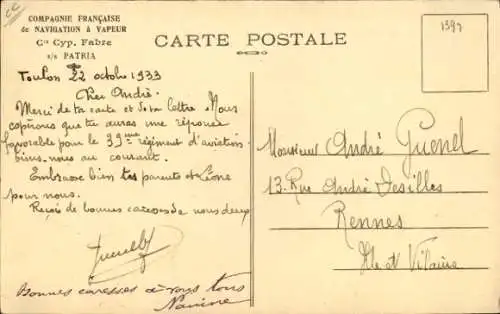 CC
COMPAGNIE FRANÇAISE
de NAVIGATION à VAPEUR
Cie Cyp. Fabre
s/s PATRIA
CARTE POSTALE
1397
Toulon 22 octobre 1933
Cher André.
Merci de ta carte et de ta lettre. Nous
espérons que tu auras une réponse
favorable pour le 39ème régiment d'aviation
nous au courant.
Embrasse bien tes parents et
pour nous.
Reçois de bonnes caresses de nous deux
Bonnes caresses à vous tous
Monsieur André Guenel
13. Rue André Desilles
Rennes
Ille et Vilaine